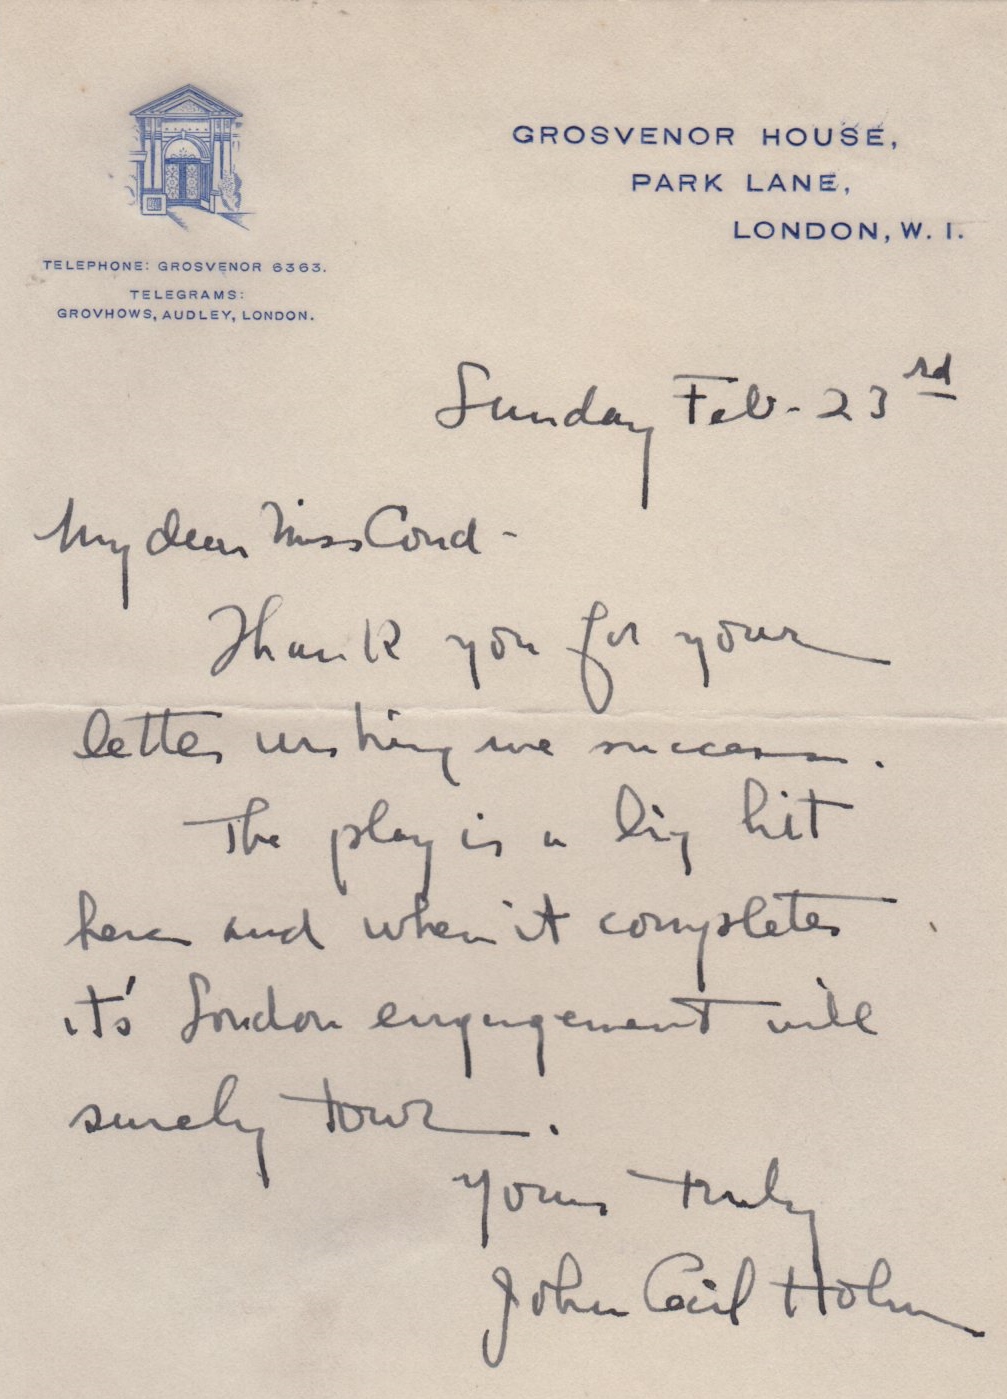 GROSVENOR HOUSE,
PARK LANE,
LONDON, W. 1.
TELEPHONE: GROSVENOR 6363.
TELEGRAMS:
GROVHOWS, AUDLEY, LONDON.
Sunday Feb- 23rd
My dear Miss Cord -
Thank you for your
letter wishing me success.
The play is a big hit
here and when it completes
it's London engagement will
surely tour.
Yours truly
John Cecil Holm